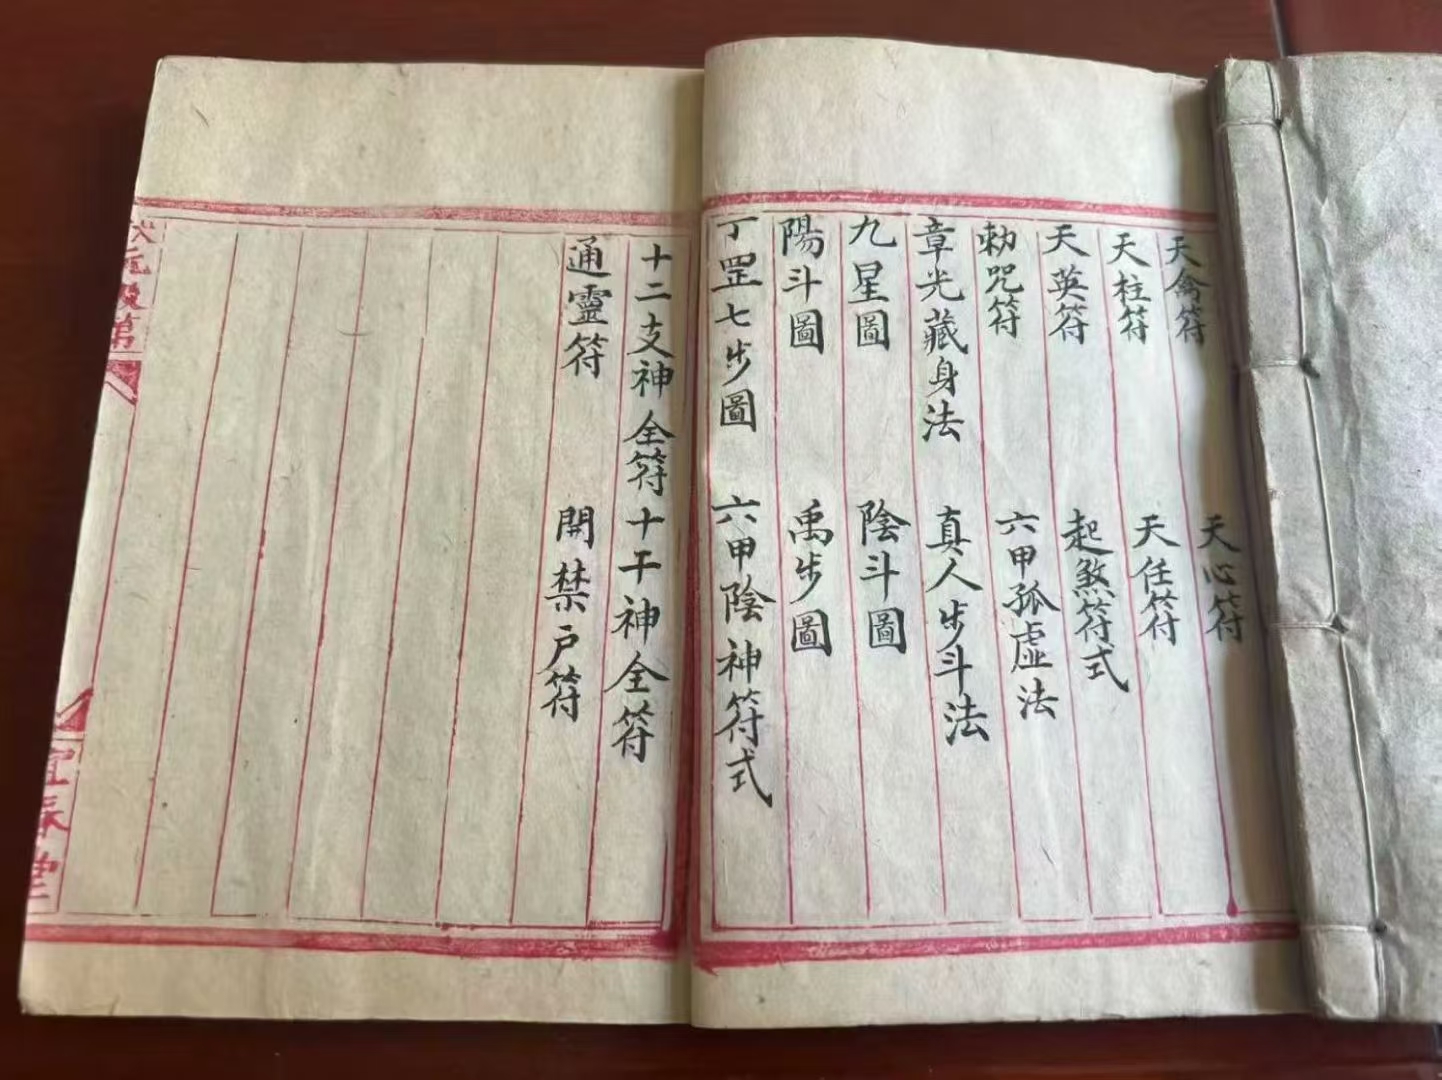 天禽符 天心符
天柱符 天任符
天英符 起煞符式
勅咒符 六甲孤虛法
章光藏身法 真人步斗法
九星圖 陰斗圖
陽斗圖 禹步圖
丁罡七步圖 六甲陰神符式
十二支神全符 十干神全符
通靈符 開禁戶符
第
宜春堂